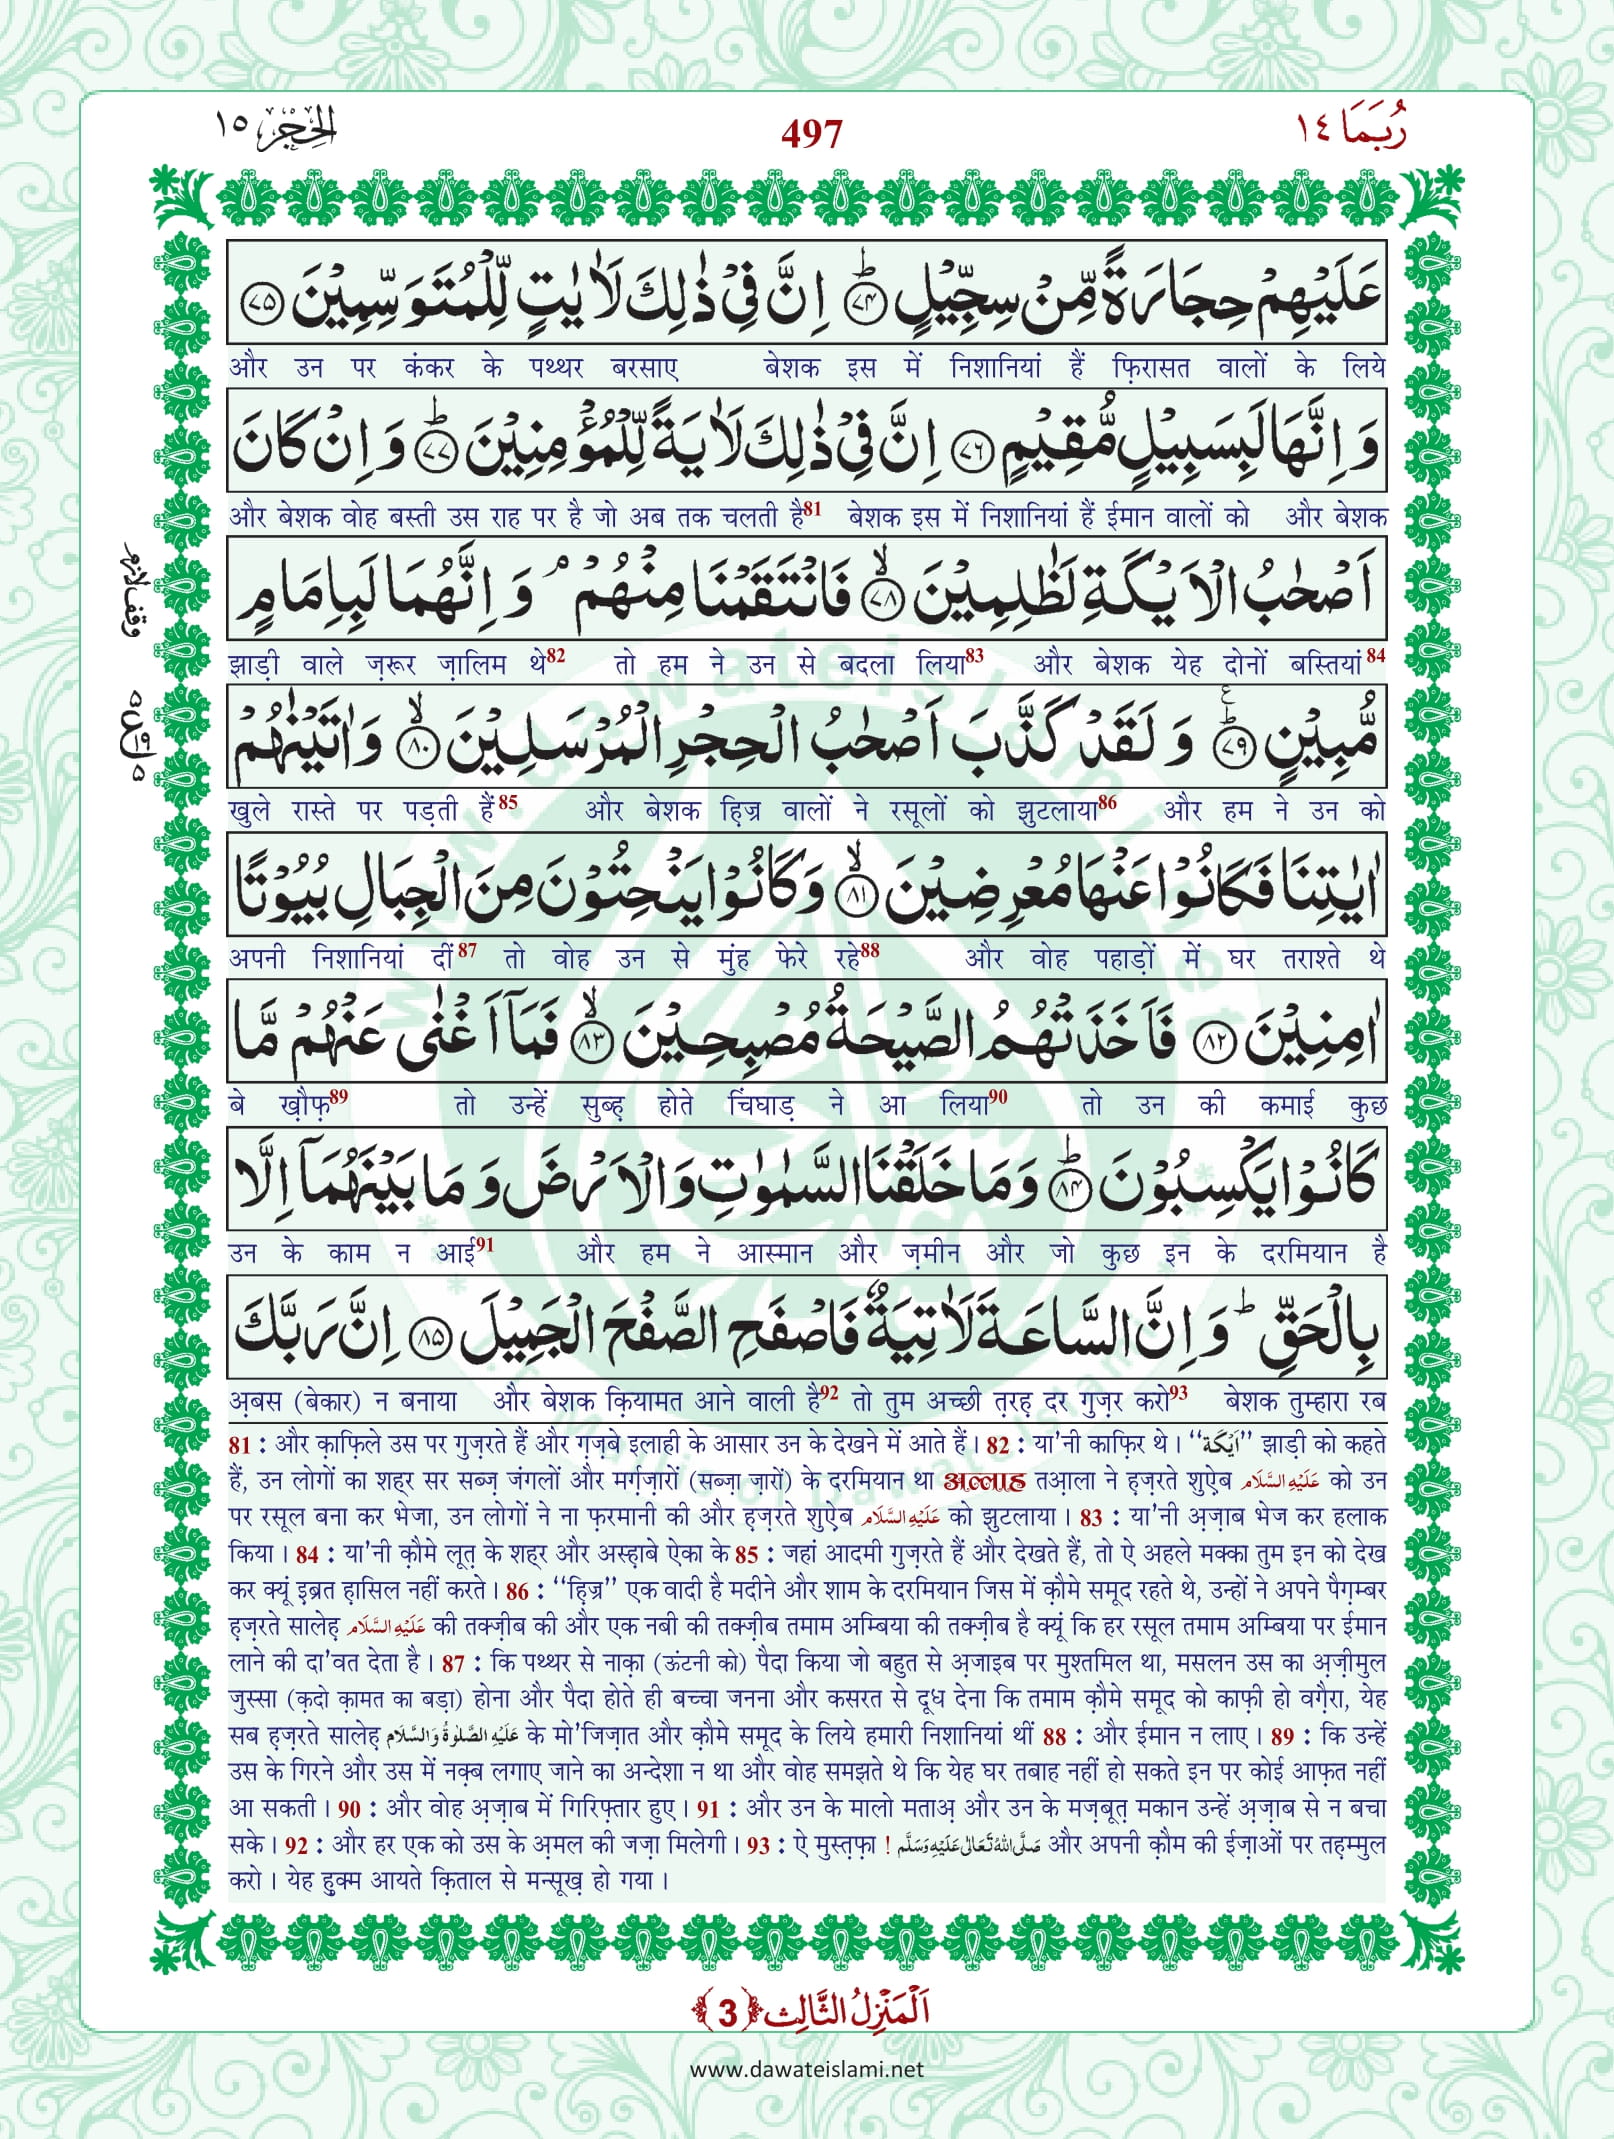 رُبَمَا ١٤
497
الحِجْر ١٥
عَلَيْهِمْ حِجَارَةً مِّنْ سِجِّيْلٍؕ ﴿۷۴﴾ اِنَّ فِیْ ذٰلِكَ لَاٰیٰتٍ لِّلْمُتَوَسِّمِیْنَ ﴿۷۵﴾
और उन पर कंकर के पथ्थर बरसाए बेशक इस में निशानियां हैं फ़िरासत वालों के लिये
وَ اِنَّهَا لَبِسَبِیْلٍ مُّقِیْمٍ ﴿۷۶﴾ اِنَّ فِیْ ذٰلِكَ لَاٰیَةً لِّلْمُؤْمِنِیْنَؕ ﴿۷۷﴾ وَ اِنْ كَانَ
और बेशक वोह बस्ती उस राह पर है जो अब तक चलती है81 बेशक इस में निशानियां हैं ईमान वालों को और बेशक
اَصْحٰبُ الْاَیْكَةِ لَظٰلِمِیْنَۙ ﴿۷۸﴾ فَانْتَقَمْنَا مِنْهُمْۘ وَ اِنَّهُمَا لَبِاِمَامٍ
وقف لازم
झाड़ी वाले ज़रूर ज़ालिम थे82 तो हम ने उन से बदला लिया83 और बेशक येह दोनों बस्तियां84
مُّبِیْنٍؕ۠ ﴿۷۹﴾ وَ لَقَدْ كَذَّبَ اَصْحٰبُ الْحِجْرِ الْمُرْسَلِیْنَۙ ﴿۸۰﴾ وَ اٰتَیْنٰهُمْ
खुले रास्ते पर पड़ती हैं85 और बेशक हिज्र वालों ने रसूलों को झुटलाया86 और हम ने उन को
اٰیٰتِنَا فَكَانُوْا عَنْهَا مُعْرِضِیْنَۙ ﴿۸۱﴾ وَ كَانُوْا یَنْحِتُوْنَ مِنَ الْجِبَالِ بُیُوْتًا
अपनी निशानियां दीं87 तो वोह उन से मुंह फेरे रहे88 और वोह पहाड़ों में घर तराश्ते थे
اٰمِنِیْنَ ﴿۸۲﴾ فَاَخَذَتْهُمُ الصَّیْحَةُ مُصْبِحِیْنَۙ ﴿۸۳﴾ فَمَاۤ اَغْنٰى عَنْهُمْ مَّا
बे ख़ौफ़89 तो उन्हें सुब्ह़ होते चिंघाड़ ने आ लिया90 तो उन की कमाई कुछ
كَانُوْا یَكْسِبُوْنَؕ ﴿۸۴﴾ وَ مَا خَلَقْنَا السَّمٰوٰتِ وَ الْاَرْضَ وَ مَا بَیْنَهُمَاۤ اِلَّا
उन के काम न आई91 और हम ने आस्मान और ज़मीन और जो कुछ इन के दरमियान है
بِالْحَقِّؕ وَ اِنَّ السَّاعَةَ لَاٰتِیَةٌ فَاصْفَحِ الصَّفْحَ الْجَمِیْلَ ﴿۸۵﴾ اِنَّ رَبَّكَ
अ़बस (बेकार) न बनाया और बेशक क़ियामत आने वाली है92 तो तुम अच्छी त़रह़ दर गुज़र करो93 बेशक तुम्हारा रब
81 : और क़ाफ़िले उस पर गुज़रते हैं और ग़ज़बे इलाही के आसार उन के देखने में आते हैं। 82 : या'नी काफ़िर थे। ‘‘اَيْكَة’’ झाड़ी को कहते
हैं, उन लोगों का शहर सर सब्ज़ जंगलों और मर्ग़ज़ारों (सब्ज़ा ज़ारों) के दरमियान था अल्लाह तआ़ला ने ह़ज़रते शुऐ़ब عَلَيْهِ السَّلَام को उन
पर रसूल बना कर भेजा, उन लोगों ने ना फ़रमानी की और ह़ज़रते शुऐ़ब عَلَيْهِ السَّلَام को झुटलाया। 83 : या'नी अ़ज़ाब भेज कर हलाक
किया। 84 : या'नी क़ौमे लूत़ के शहर और अस्ह़ाबे ऐका के 85 : जहां आदमी गुज़रते हैं और देखते हैं, तो ऐ अहले मक्का तुम इन को देख
कर क्यूं इब्रत ह़ासिल नहीं करते। 86 : ‘‘हिज्र’’ एक वादी है मदीने और शाम के दरमियान जिस में क़ौमे समूद रहते थे, उन्हों ने अपने पैग़म्बर
ह़ज़रते सालेह़ عَلَيْهِ السَّلَام की तक्ज़ीब की और एक नबी की तक्ज़ीब तमाम अम्बिया की तक्ज़ीब है क्यूं कि हर रसूल तमाम अम्बिया पर ईमान
लाने की दा'वत देता है। 87 : कि पथ्थर से नाक़ा (ऊंटनी को) पैदा किया जो बहुत से अ़जाइब पर मुश्तमिल था, मसलन उस का अ़ज़ीमुल
जुस्सा (क़दो क़ामत का बड़ा) होना और पैदा होते ही बच्चा जनना और कसरत से दूध देना कि तमाम क़ौमे समूद को काफ़ी हो वग़ैरा, येह
सब ह़ज़रते सालेह़ عَلَيْهِ الصَّلٰوةُ وَالسَّلَام के मो'जिज़ात और क़ौमे समूद के लिये हमारी निशानियां थीं 88 : और ईमान न लाए। 89 : कि उन्हें
उस के गिरने और उस में नक़्ब लगाए जाने का अन्देशा न था और वोह समझते थे कि येह घर तबाह नहीं हो सकते इन पर कोई आफ़त नहीं
आ सकती। 90 : और वोह अ़ज़ाब में गिरिफ़्तार हुए। 91 : और उन के मालो मताअ़ और उन के मज़बूत़ मकान उन्हें अ़ज़ाब से न बचा
सके। 92 : और हर एक को उस के अ़मल की जज़ा मिलेगी। 93 : ऐ मुस्त़फ़ा ! صَلَّى اللهُ تَعَالٰى عَلَيْهِ وَسَلَّم और अपनी क़ौम की ईज़ाओं पर तह़म्मुल
करो। येह हुक्म आयते क़िताल से मन्सूख़ हो गया।
اَلْمَنْزِلُ الثَّالِث ﴿3﴾
www.dawateislami.net